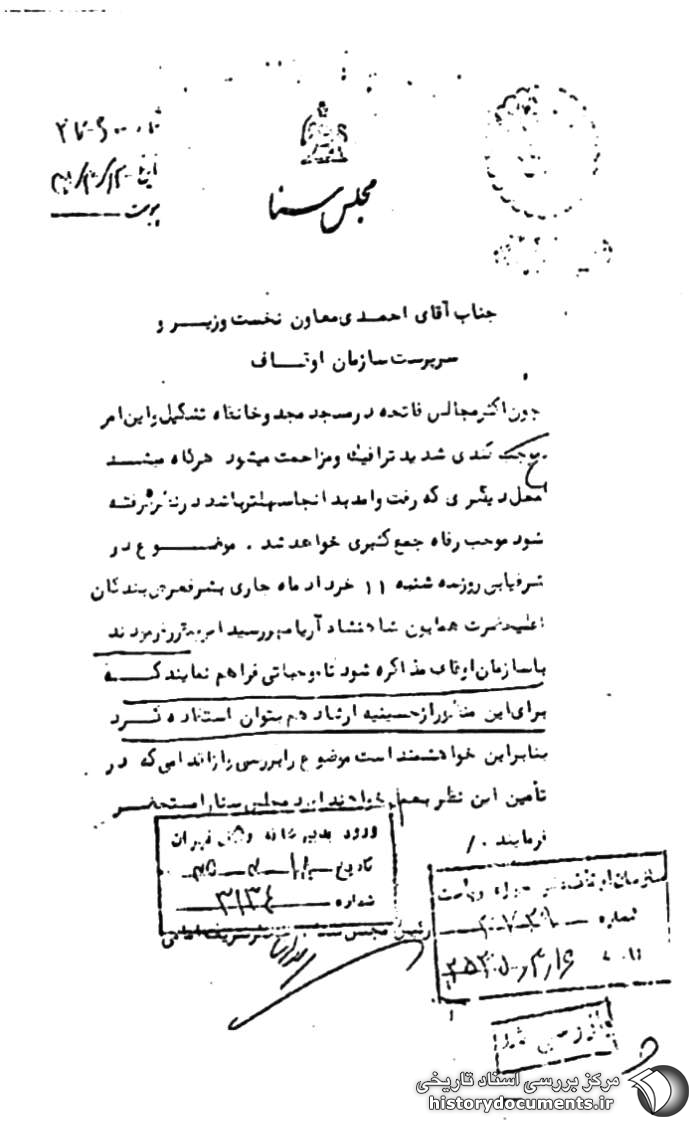 مجلس سنا
جناب آقای احمدی معاون نخست وزیر و
سرپرست سازمان اوقاف
چون اکثر مجالس فاتحه در مسجد مجد و خانقاه تشکیل و این امر
موجب کندی شدید ترافیک و مزاحمت میشود هرگاه میشد
محل دیگری که رفت و آمد بد انجا سهلتر باشد در نظر گرفته
شود موجب رفاه جمع کثیری خواهد شد . موضوع در
شرفیابی روز سه شنبه ۱۱ خرداد ماه جاری بشرفعرض بندگان
اعلیحضرت همایون شاهنشاه آریامهر رسید امر و مقرر فرمودند
با سازمان اوقاف مذاکره شود تا موجباتی فراهم نمایند که
برای این منظور از حسینیه ارشاد هم بتوان استفاده کرد
بنابراین خواهشمند است موضوع را بررسی و از اقدامی که در
تأمین این نظر بعمل خواهند آورد مجلس سنا را مستحضر
فرمایند ./
تاریخ
شماره ۳۱۳۴
رئیس مجلس سنا شریف امامی
سازمان اوقاف
شماره
مرکز بررسی اسناد تاریخی
historydocuments.ir